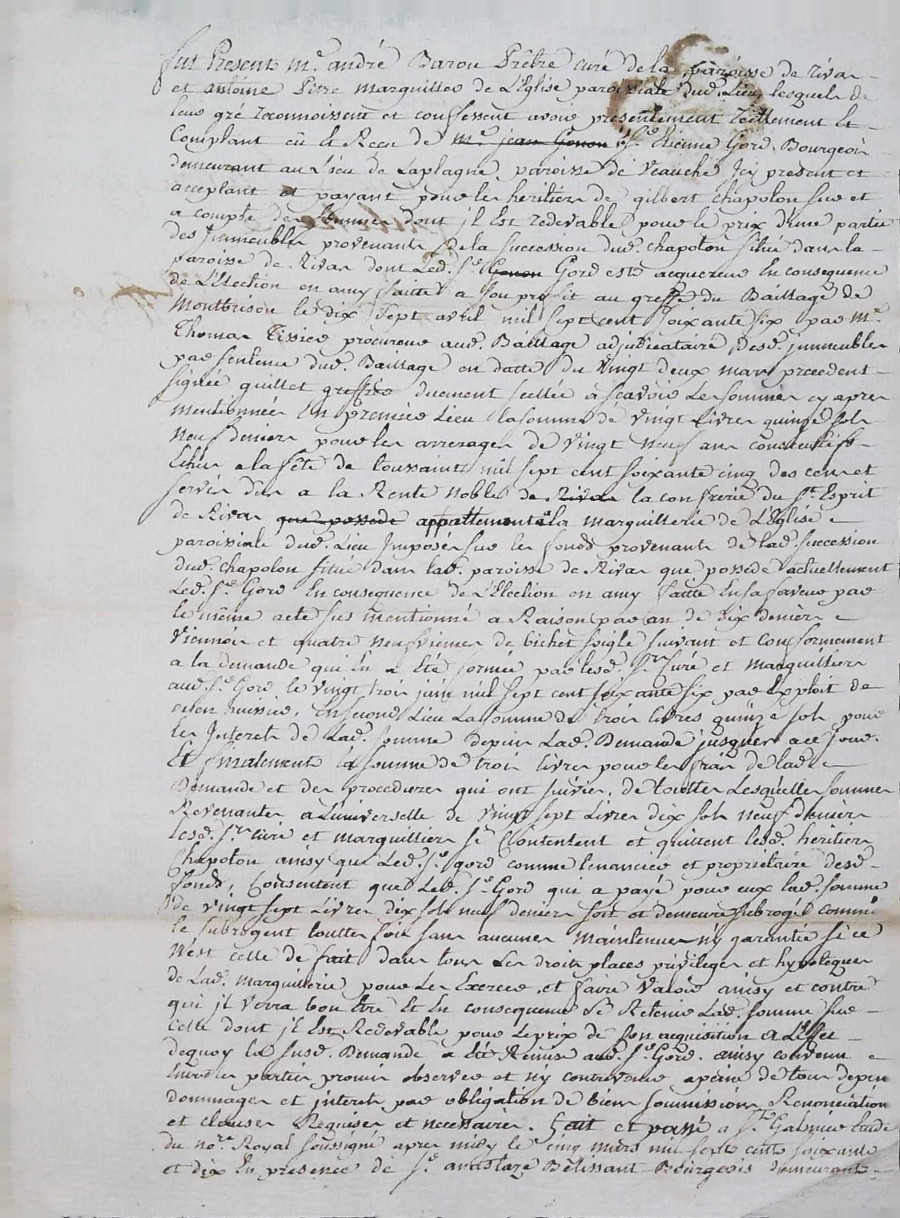 fut Present me. andré Barou Prêtre curé de la paroisse de rivas
et antoine Pitre Marguillier de L'Eglise paroissiale dud. Lieu, lesquels de
leur gré reconnoissent et confessent avoir presentement réellement et
Comptant eü et Recu de me. jean Gonon Sr. Etienne Gord. Bourgeois
demeurant au Lieu de Laplagne paroisse de Veauche Icy present et
acceptant et payant pour les heritiers de gilbert Chapolon sur et
a compte des sommes dont jl Est redevable pour le prix d'une partie
des Jmmeubles provenants de la succession dud. chapolon situé dans la
paroisse de Rivas dont Led. Sr. Gonon Gord este acquereur En consequence
de L'Election en amy faitte a son profit au greffe du Baillage de
Montbrison le dix sept avril mil sept cent soixante six par Me
Thomas Tissier procureur aud. Baillage adjudicataire desd. jmmeubles
par sentence dud. Baillage en datte du vingt deux mars precedent
signée guillet greffier duement scellée a scavoir Les sommes cy apres
mentionnées En premier Lieu la somme de vingt Livres quinze sols
neuf deniers pour les arrerages de vingt neuf ans consecutifs
Echus a la fête de toussaints mil sept cent soixante cinq des cens et
servis dûs a la Rente noble de Rivas la confrerie du St. Esprit
de Rivas que possede appartenante a la marguillerie de L'Eglise
paroissiale dud. Lieu Jmposée sur les fonds provenants de lad. succession
dud. chapolon situé dans lad. paroisse de Rivas que possede actuellement
Led. Sr. Gord En consequence de L'Election en amy faitte En sa faveur par
le même acte sus mentionné a Raison par an de dix deniers
viennois et quatre neufviemes de bichet soigle suivant et conformement
a la demande qui En a été formée par lesd. Srs. Curé et Marguilliers
aud. Sr. Gord le vingt trois juin mil sept cent soixante six par Exploit de
huissier. En second Lieu La somme de trois livres quinze sols pour
les Interets de Lad. somme depuis Lad. Demande jusques a ce jour.
Et finalement la somme de trois livres pour les frais de lad.
Demande et des procedures qui ont suivies. de touttes Lesquelles sommes
Revenantes a L'universelle de vingt sept Livres dix sols neuf deniers
lesd. Srs. curé et marguilliers se Contentent et quittent lesd. heritiers
Chapolon ainsy que Led. Sr. gord comme tenancier et proprietaire desd.
fonds, Consentent que Led. Sr. Gord qui a payé pour eux lad. somme
de vingt sept Livres dix sols neuf deniers soit et demeure subrogé comme
le subrogent touttes fois sans aucunes Maintenue ny garantie si ce
n'est celle de fait dans tous Les droits places privileges et hypoteques
de Lad. Marguillerie pour Les Exercer et faire valoir ainsy et contre
qui jl verra bon être Et En consequence de Retenir Lad. somme sur
celle dont jl Est Redevable pour le prix de son acquisition a L'effet
dequoy la susd. Demande a été Remise aud. Sr. Gord. ainsy convenu
Entre les parties promis observer et n'y contrevenir a peine de tous depens
dommages et jnterets par obligation de biens soumissions Renonciation
et clauses Requises et necessaires. fait et passé a St. Galmier Etude
du nore. Royal soussigné apres midy le cinq mars mil sept cent soixante
et dix En presence de Sr. anastaze Bélissant Bourgeois demeurant